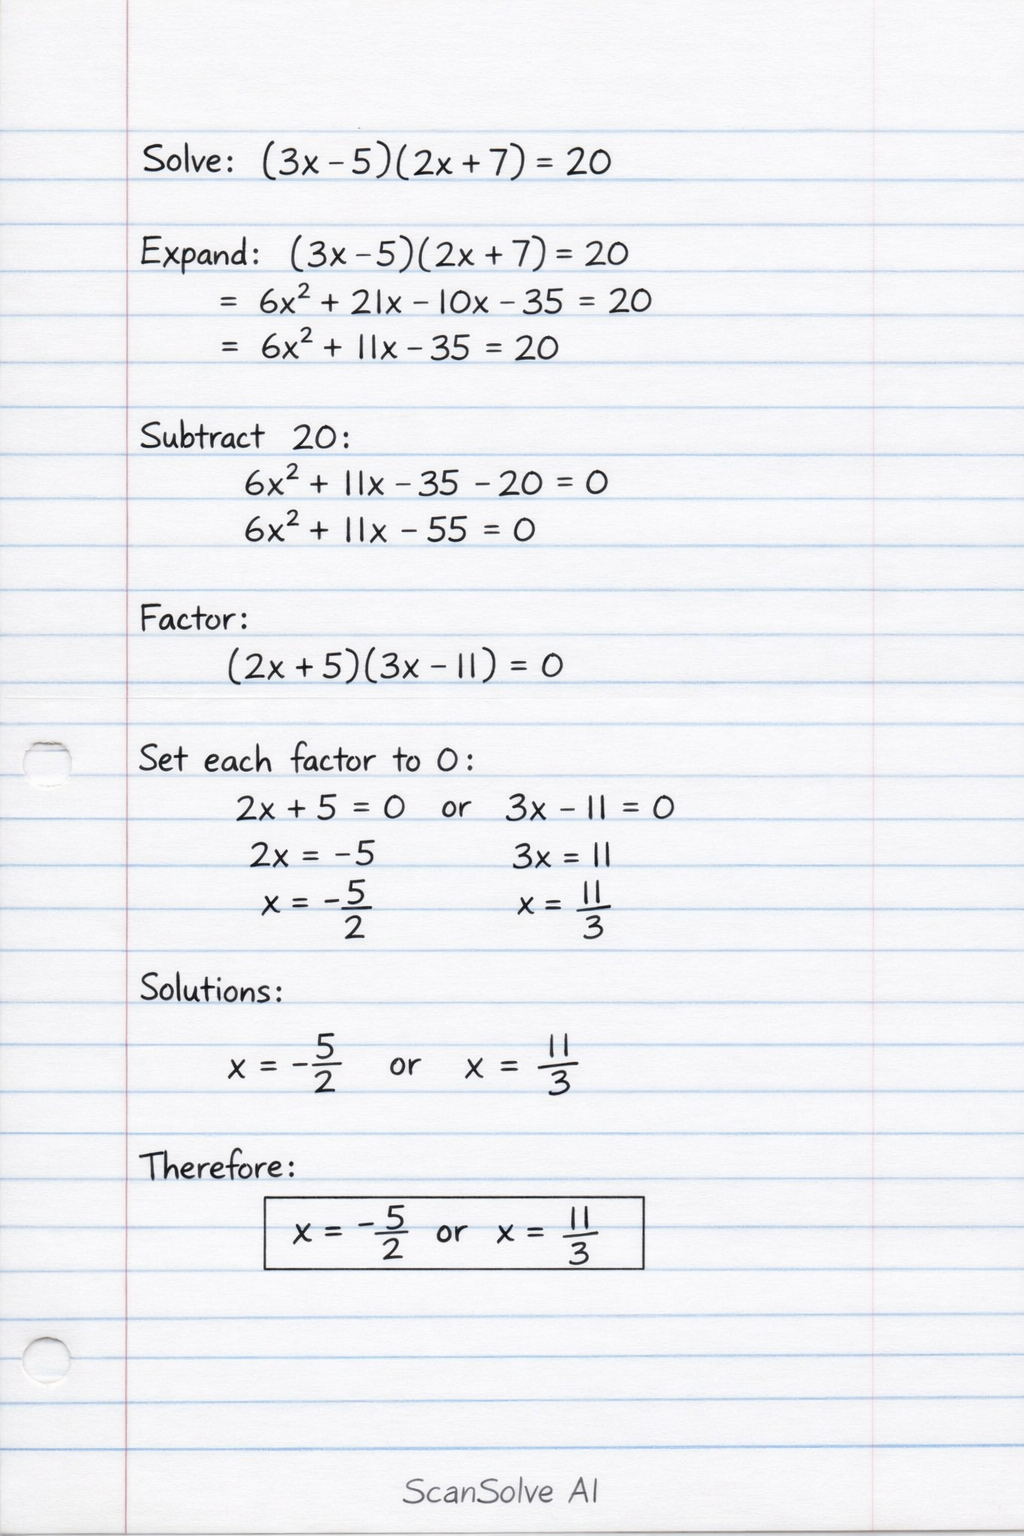 Solve: (3x - 5)(2x + 7) = 20
Expand: (3x - 5)(2x + 7) = 20
= 6x² + 21x - 10x - 35 = 20
= 6x² + 11x - 35 = 20
Subtract 20:
6x² + 11x - 35 - 20 = 0
6x² + 11x - 55 = 0
Factor:
(2x + 5)(3x - 11) = 0
Set each factor to 0:
2x + 5 = 0 or 3x - 11 = 0
2x = -5 3x = 11
x = -5/2 x = 11/3
Solutions:
x = -5/2 or x = 11/3
Therefore:
x = -5/2 or x = 11/3
ScanSolve AI